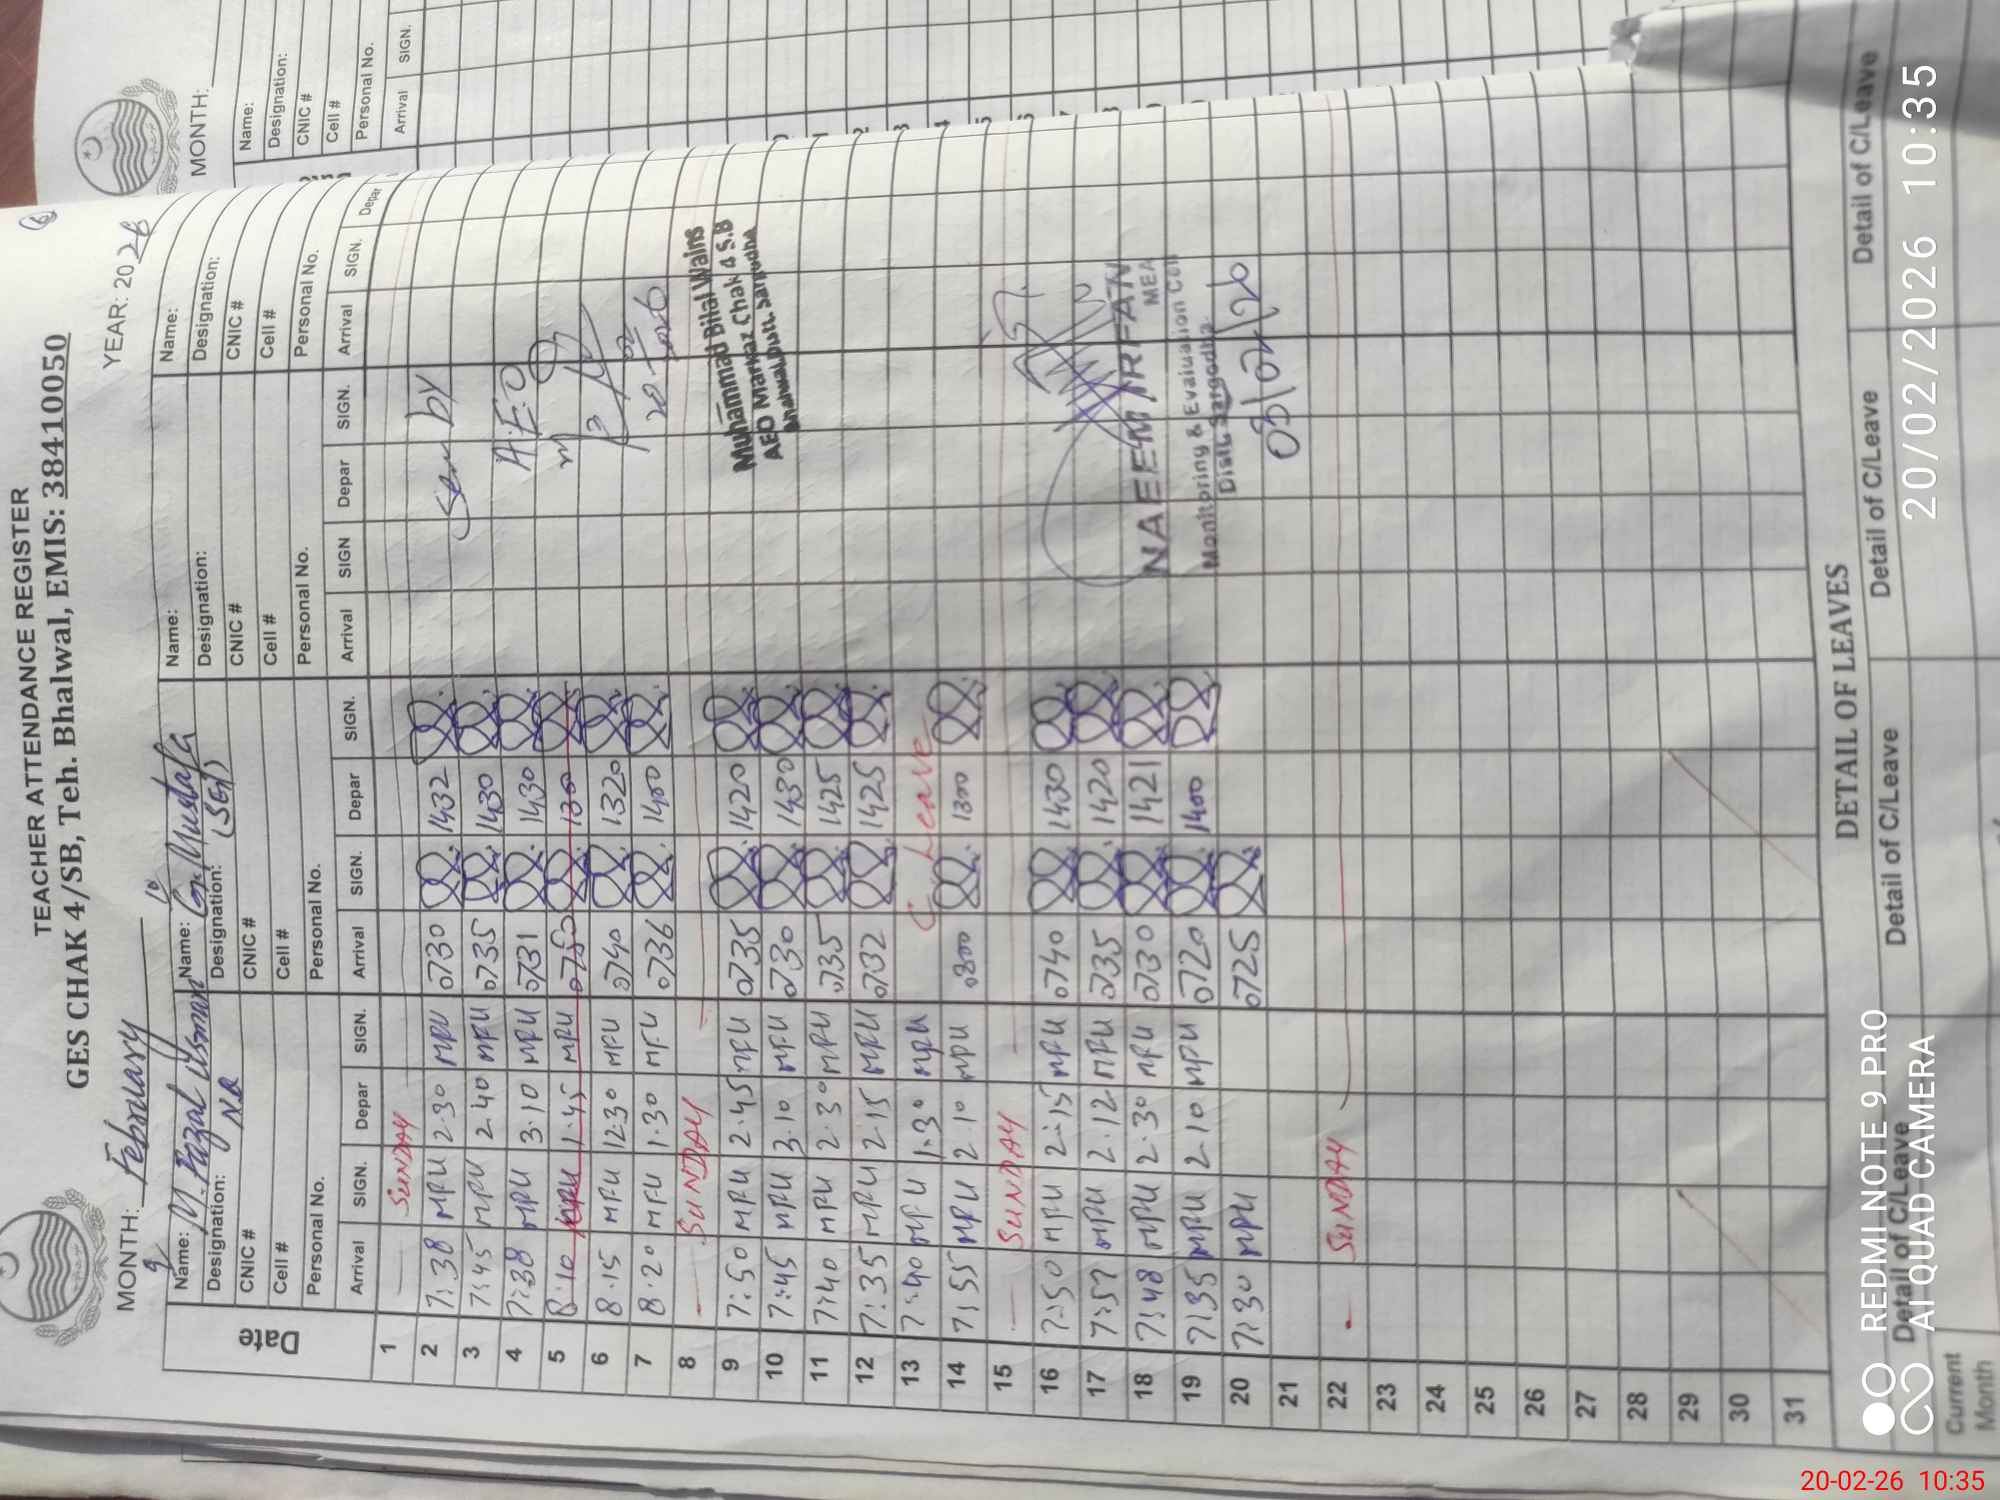 TEACHER ATTENDANCE REGISTER
GES CHAK 4/SB, Teh. Bhalwal, EMIS: 38410050
MONTH: February YEAR: 2026
Name: M. Fazal Usman Name: G. Mustafa Name: Name:
Designation: NQ Designation: (SESE) Designation: Designation:
CNIC # CNIC # CNIC # CNIC #
Cell # Cell # Cell # Cell #
Personal No. Personal No. Personal No. Personal No.
Date Arrival SIGN. Depar SIGN. Arrival SIGN. Depar SIGN. Arrival SIGN Depar SIGN. Arrival SIGN. Depar
1 SUNDAY
2 7:38 MFU 2:30 MFU 0730 1432 Seen by
3 7:45 MFU 2:40 MFU 0735 1430
4 7:38 MFU 3:10 MFU 0731 1430 A.E.O
5 8:10 MFU 1:45 MFU 1300
6 8:15 MFU 12:30 MFU 0740 1320
7 8:20 MFU 1:30 MFU 0736 1400 20-02-2026
8 SUNDAY
9 7:50 MFU 2:45 MFU 0735 1420 Muhammad Bilal Wains
10 7:45 MFU 3:10 MFU 0730 1430 AEO Markaz Chak 4 S.B
11 7:40 MFU 2:30 MFU 0735 1425 Bhalwal Distt. Sargodha
12 7:35 MFU 2:15 MFU 0732 1425
13 7:40 MFU 1:30 MFU C Leave
14 7:55 MFU 2:10 MFU 0800 1300
15 SUNDAY
16 7:50 MFU 2:15 MFU 0740 1430
17 7:57 MFU 2:12 MFU 0735 1420
18 7:48 MFU 2:30 MFU 0730 1421 NAEEM IRFAN MEA
19 7:35 MFU 2:10 MFU 0720 1400 Monitoring & Evaluation Cell
Distt. Sargodha
20 7:30 MFU 0725
21
22 SUNDAY
23
24
25
26
27
28
29
30
31
DETAIL OF LEAVES
Detail of C/Leave Detail of C/Leave Detail of C/Leave Detail of C/Leave
Current
Month
MONTH:
Name:
Designation:
CNIC #
Cell #
Personal No.
Arrival SIGN.
REDMI NOTE 9 PRO
AI QUAD CAMERA
20/02/2026 10:35
20-02-26 10:35